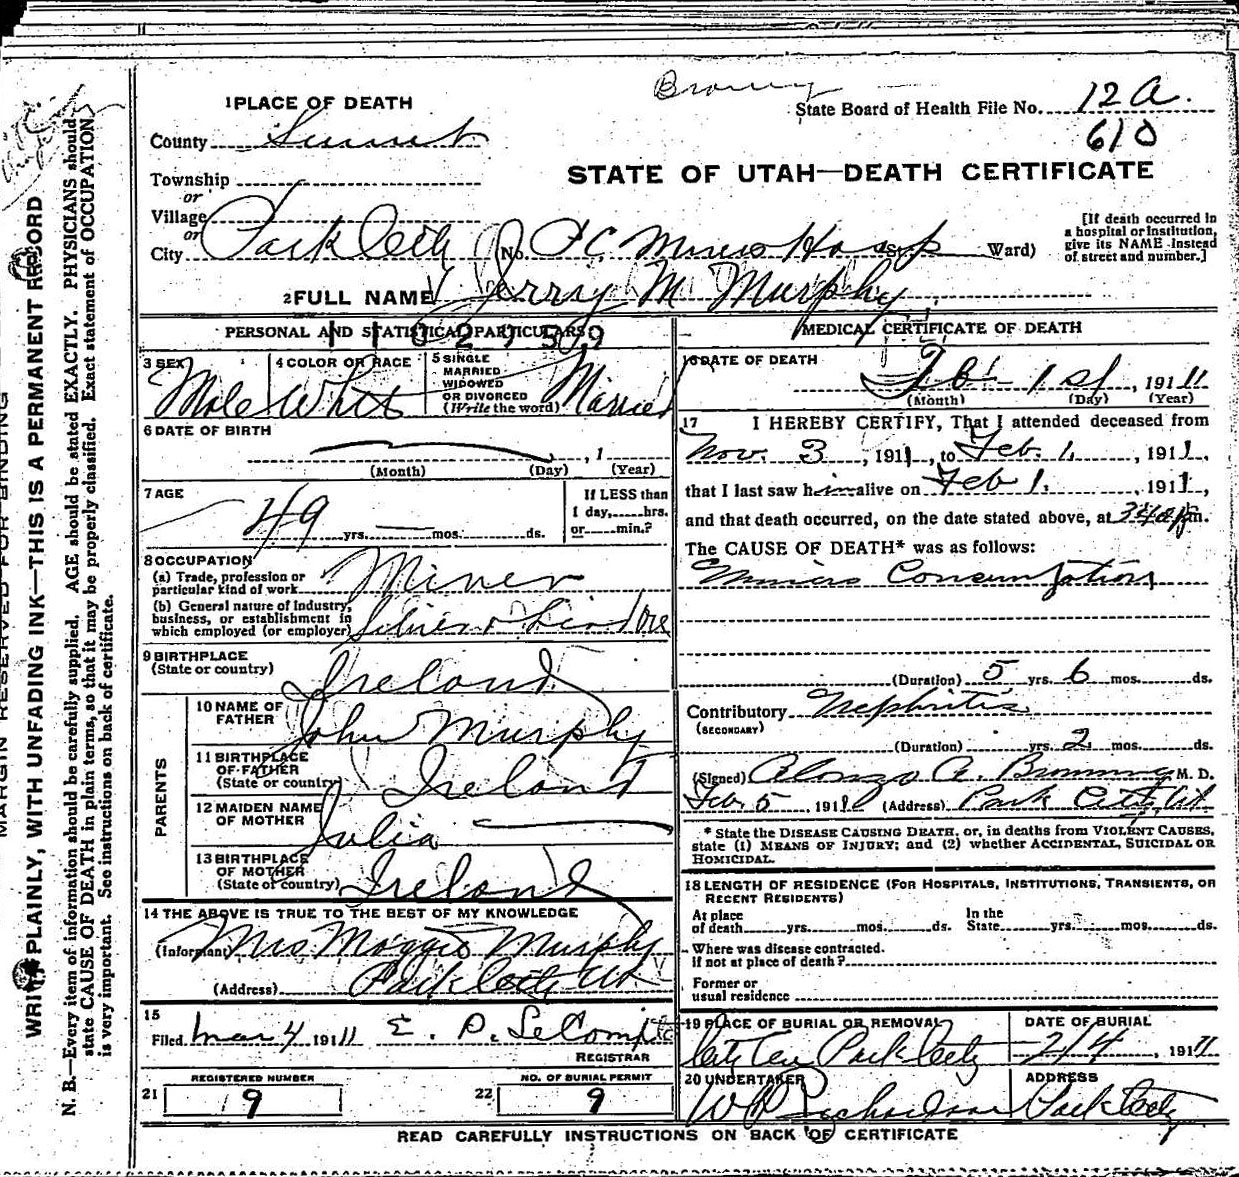 1 PLACE OF DEATH
State Board of Health File No. 12A.
610
County Summit
STATE OF UTAH—DEATH CERTIFICATE
Township
or
Village
or
City Park City No. P C Miners Hosp Ward)
[If death occurred in a hospital or institution, give its NAME instead of street and number.]
2 FULL NAME Jerry M Murphy
PERSONAL AND STATISTICAL PARTICULARS
3 SEX Male
4 COLOR OR RACE White
5 SINGLE MARRIED WIDOWED OR DIVORCED (Write the word) Married
6 DATE OF BIRTH
, 1
(Month) (Day) (Year)
7 AGE
49 yrs. mos. ds.
If LESS than 1 day, hrs. or min.?
8 OCCUPATION
(a) Trade, profession or particular kind of work Miner
(b) General nature of industry, business, or establishment in which employed (or employer) Silver & Lead Ore
9 BIRTHPLACE
(State or country) Ireland
PARENTS
10 NAME OF FATHER John Murphy
11 BIRTHPLACE OF FATHER (State or country) Ireland
12 MAIDEN NAME OF MOTHER Julia
13 BIRTHPLACE OF MOTHER (State or country) Ireland
14 THE ABOVE IS TRUE TO THE BEST OF MY KNOWLEDGE
(Informant) Mrs Maggie Murphy
(Address) Park City Ut
15
Filed Mar 4 1911 E. P. LeCompte
REGISTRAR
REGISTERED NUMBER
21 9
NO. OF BURIAL PERMIT
22 9
MEDICAL CERTIFICATE OF DEATH
16 DATE OF DEATH
Feb 1st, 1911
(Month) (Day) (Year)
17 I HEREBY CERTIFY, That I attended deceased from
Nov. 3, 1911, to Feb. 1., 1911,
that I last saw him alive on Feb 1., 1911,
and that death occurred, on the date stated above, at m.
The CAUSE OF DEATH* was as follows:
Miners Consumption
(Duration) 5 yrs. 6 mos. ds.
Contributory Nephritis
(SECONDARY)
(Duration) yrs. 2 mos. ds.
(Signed) Alonzo A. Browning M. D.
Feb. 5, 1911 (Address) Park City Ut
* State the DISEASE CAUSING DEATH, or, in deaths from VIOLENT CAUSES, state (1) MEANS OF INJURY; and (2) whether ACCIDENTAL, SUICIDAL OR HOMICIDAL.
18 LENGTH OF RESIDENCE (FOR HOSPITALS, INSTITUTIONS, TRANSIENTS, OR RECENT RESIDENTS)
At place of death yrs. mos. ds. In the State yrs. mos. ds.
Where was disease contracted. If not at place of death?
Former or usual residence
19 PLACE OF BURIAL OR REMOVAL City Cem Park City
DATE OF BURIAL 2/4, 1911
20 UNDERTAKER Richardson
ADDRESS Park City
READ CAREFULLY INSTRUCTIONS ON BACK OF CERTIFICATE
MARGIN RESERVED FOR BINDING
WRITE PLAINLY, WITH UNFADING INK—THIS IS A PERMANENT RECORD
N. B.—Every item of information should be carefully supplied. AGE should be stated EXACTLY. PHYSICIANS should
state CAUSE OF DEATH in plain terms, so that it may be properly classified. Exact statement of OCCUPATION
is very important. See instructions on back of certificate.